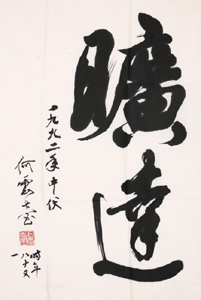 曠達
一九九二年中伏
何雲
時年
八十又
一